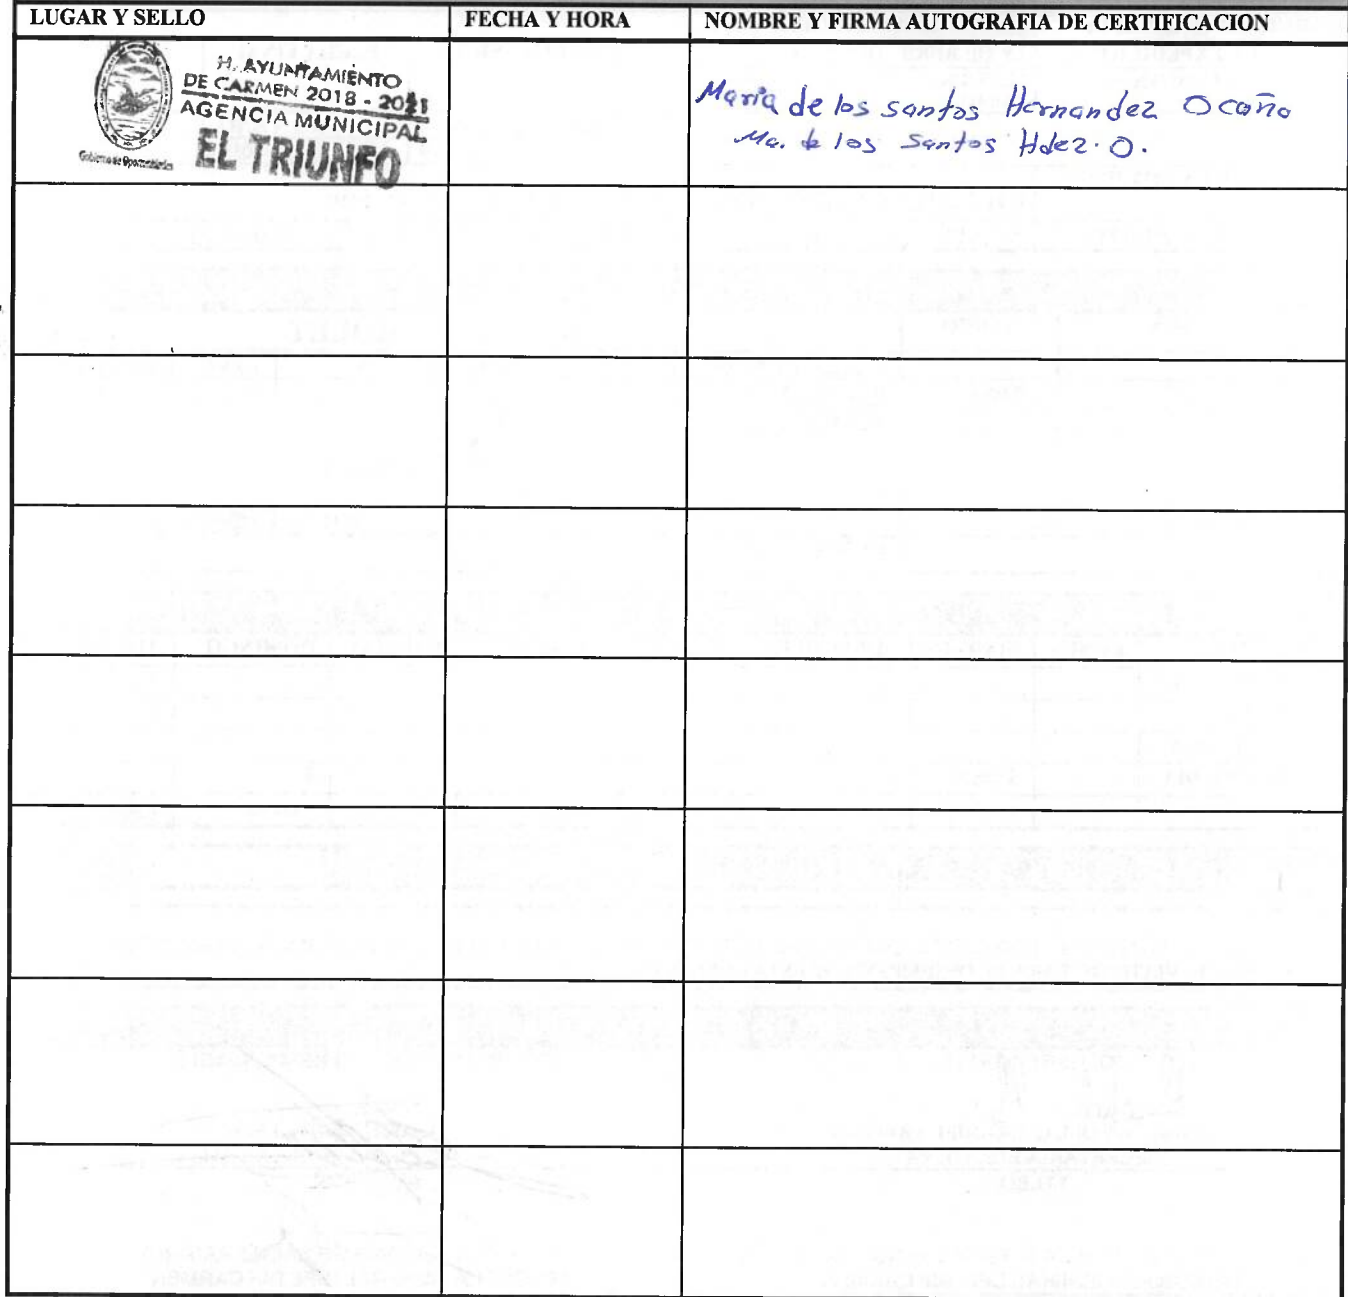 LUGAR Y SELLO
FECHA Y HORA
NOMBRE Y FIRMA AUTOGRAFIA DE CERTIFICACION
H. AYUNTAMIENTO
DE CARMEN 2018 - 2021
AGENCIA MUNICIPAL
EL TRIUNFO
Maria de los santos Hernandez Ocaña
Ma. de los Santos Hdez. O.